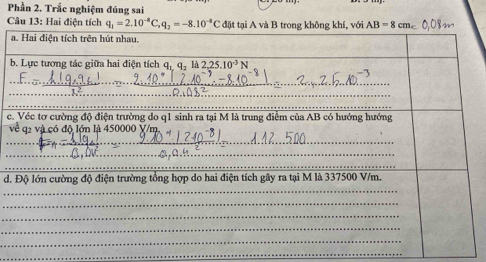 Phần 2. Trắc nghiệm đúng sai
Câu 13: Hai điện tích q₁ = 2.10⁻⁸C, q₂ = −8.10⁻⁸C đặt tại A và B trong không khí, với AB = 8 cm. 0,08m
a. Hai điện tích trên hút nhau.
b. Lực tương tác giữa hai điện tích q₁, q₂ là 2,25.10⁻³ N
F = k|q₁q₂| / r² = 9.10⁹ |2.10⁻⁸ . -8.10⁻⁸| / 0,08² = 2,25.10⁻³
c. Véc tơ cường độ điện trường do q1 sinh ra tại M là trung điểm của AB có hướng hướng
về q₂ và có độ lớn là 450000 V/m.
= 9.10⁹ |2.10⁻⁸| / 0,04² = 112.500
d. Độ lớn cường độ điện trường tổng hợp do hai điện tích gây ra tại M là 337500 V/m.